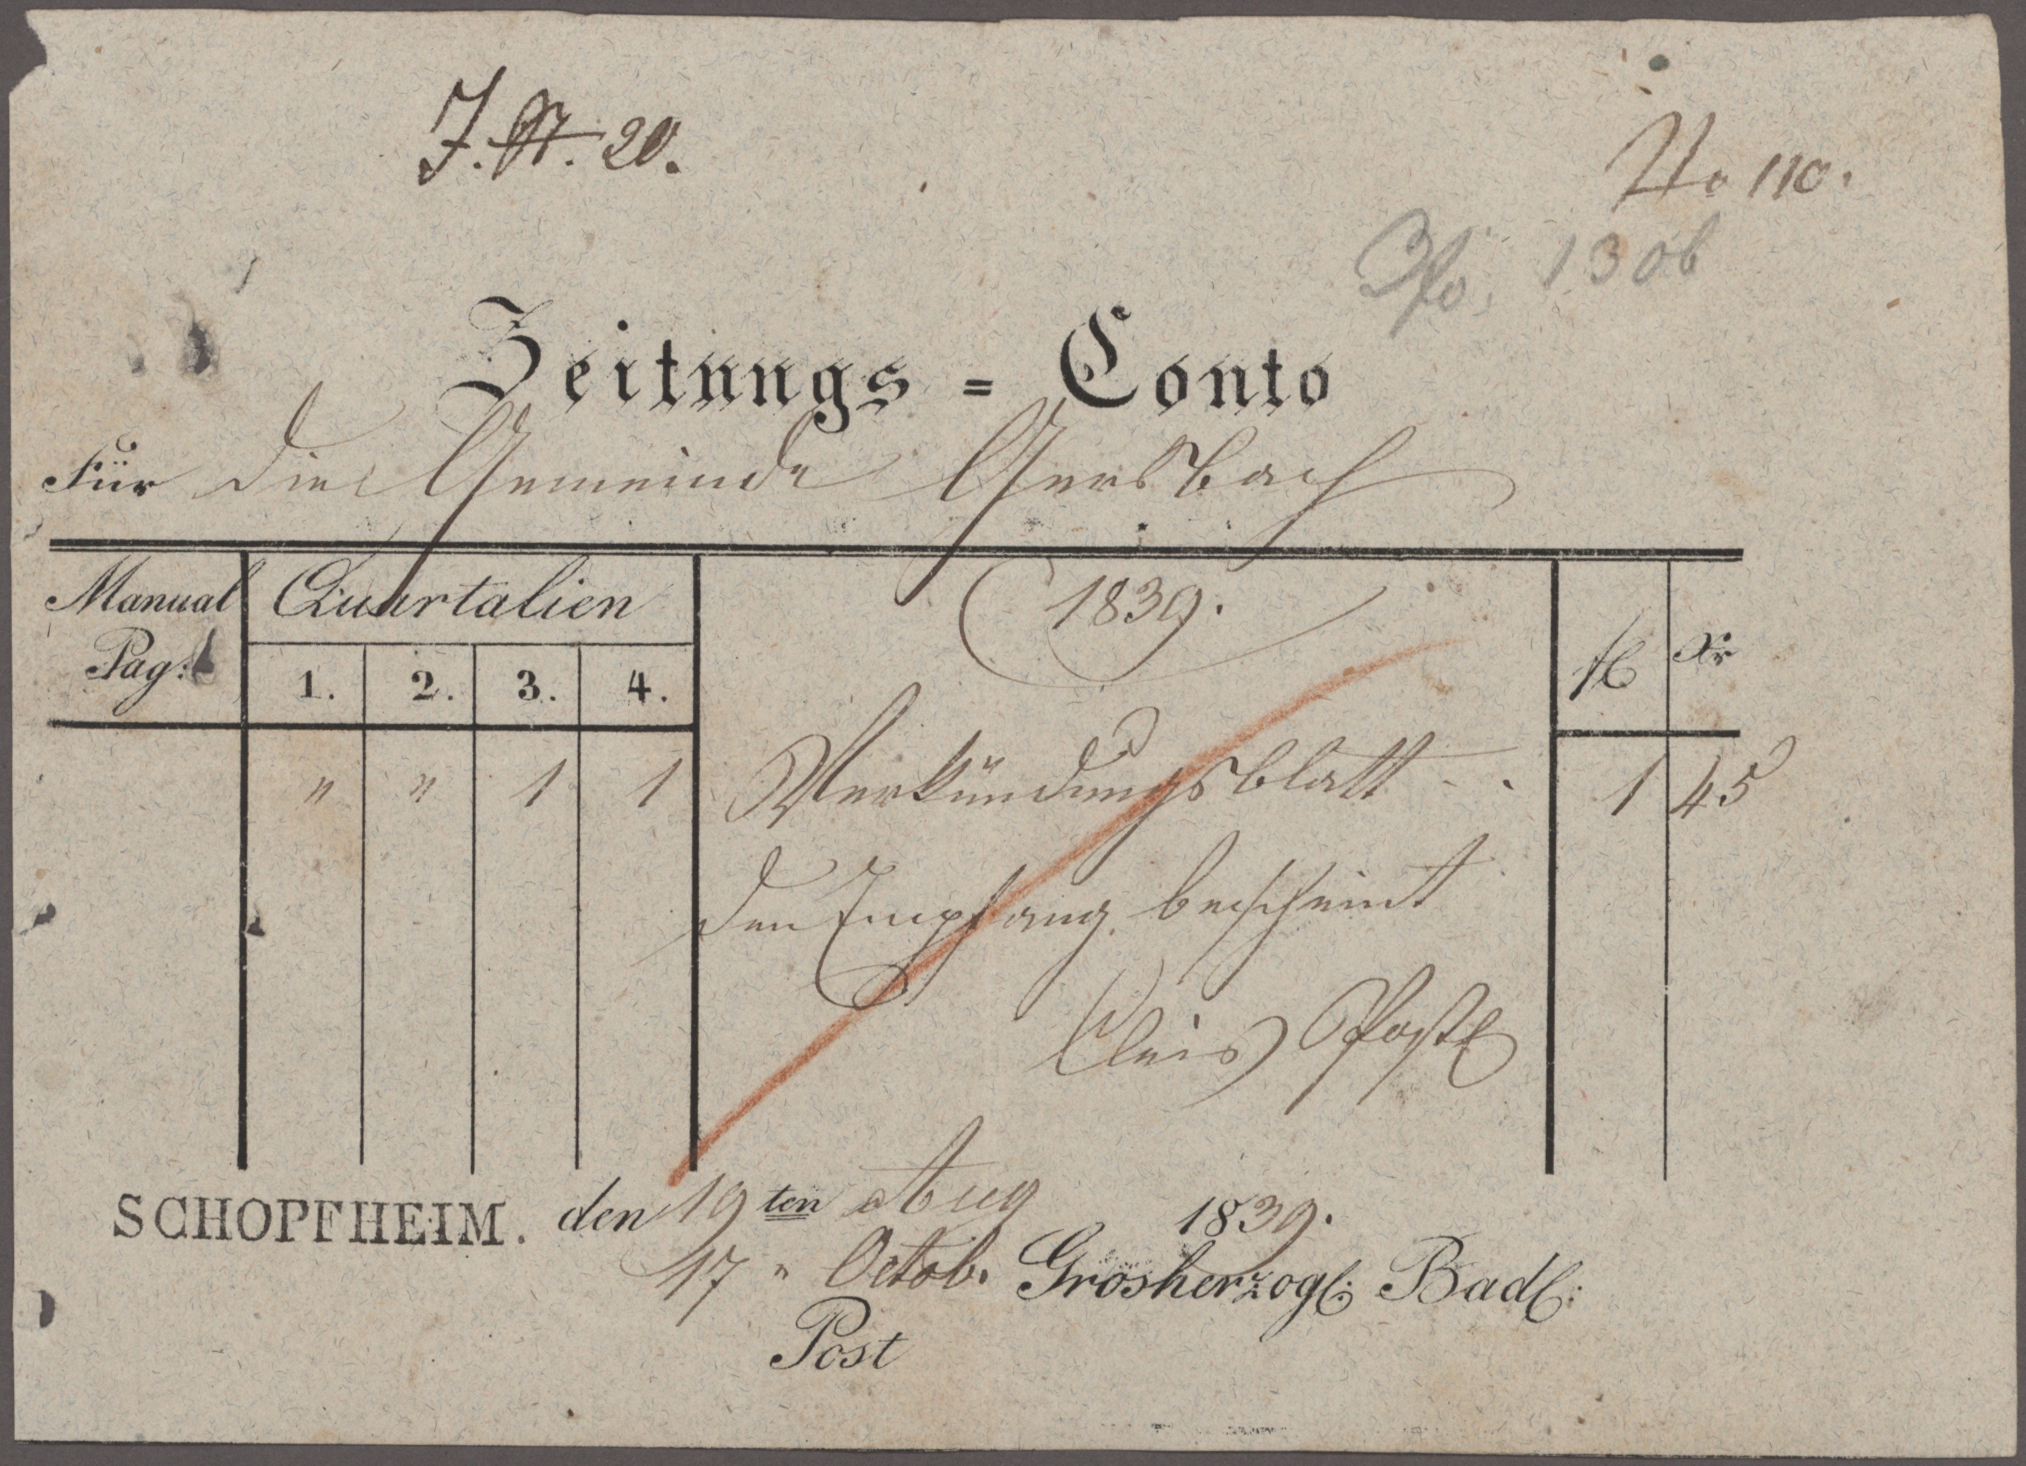 J. N. 20.
No 110.
130b
Zeitungs = Conto
Für die Gemeinde Gersbach
Manual Pag:
Quartalien
1. 2. 3. 4.
1839.
fl Xr
" " 1 1 Verkündungsblatt - . 1 45
den Empfang bescheint
Posth
SCHOPFHEIM. den 19 ten Aug 1839.
17 " Octob. Grosherzogl: Badl:
Post